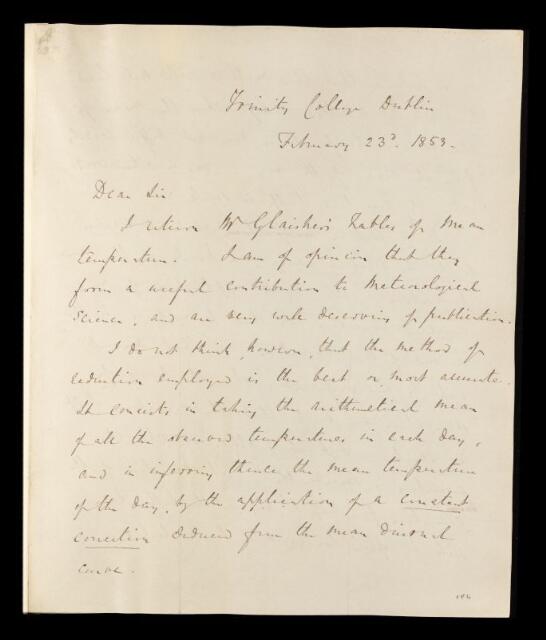 Trinity College Dublin
February 23d. 1853.
Dear Sir
I return Mr Glaisher's Tables of Mean
temperature. I am of opinion that they
form a useful contribution to Meteorological
Science, and are very well deserving of publication.
I do not think, however, that the method of
reduction employed is the best or most accurate.
It consists in taking the arithmetical mean
of all the observed temperatures in each day,
and in inferring thence the mean temperature
of the day, by the application of a constant
correction deduced from the mean diurnal
curve.